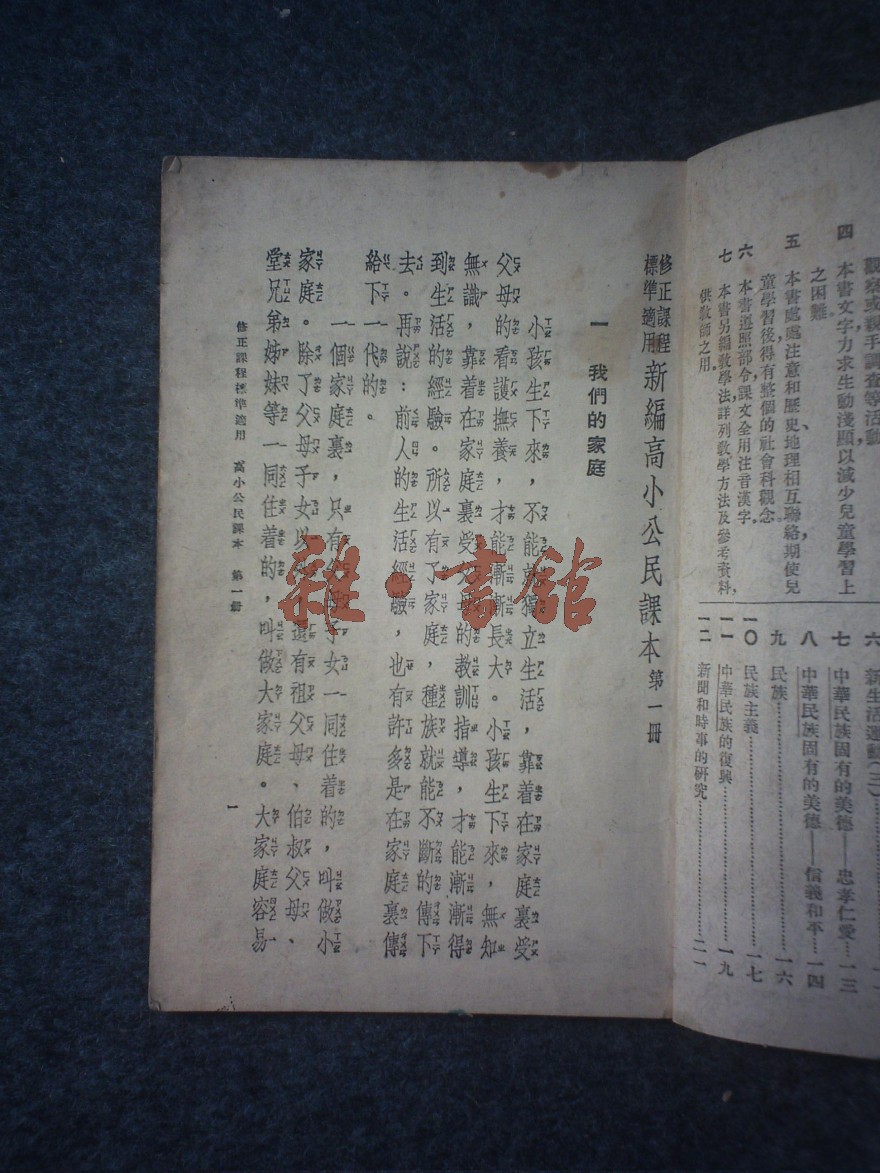 觀察或親手調查等活動
四 本書文字力求生動淺顯,以減少兒童學習上
之困難。
五 本書處處注意和歷史、地理相互聯絡,期使兒
童學習後得有整個的社會科觀念。
六 本書遵照部令,課文全用注音漢字。
七 本書另編教學法,詳列教學方法及參考資料,
供教師之用。
六 新生活運動(三)
七 中華民族固有的美德——忠孝仁愛…一三
八 中華民族固有的美德——信義和平…一四
九 民族…一六
一〇 民族主義…一七
一一 中華民族的復興…一九
一二 新聞和時事的研究…二一
修正課程
標準適用 新編高小公民課本 第一冊
一 我們的家庭
小孩生下來,不能就獨立生活,靠着在家庭裏受
父母的看護撫養,才能漸漸長大。小孩生下來,無知
無識,靠着在家庭裏受父母的教訓指導,才能漸漸得
到生活的經驗。所以有了家庭,種族就能不斷的傳下
去。再說:前人的生活經驗,也有許多是在家庭裏傳
給下一代的。
一個家庭裏,只有父母子女一同住着的,叫做小
家庭。除了父母子女以外,還有祖父母、伯叔父母、
堂兄弟姊妹等一同住着的,叫做大家庭。大家庭容易
修正課程標準適用 高小公民課本 第一冊
一
雜·書館